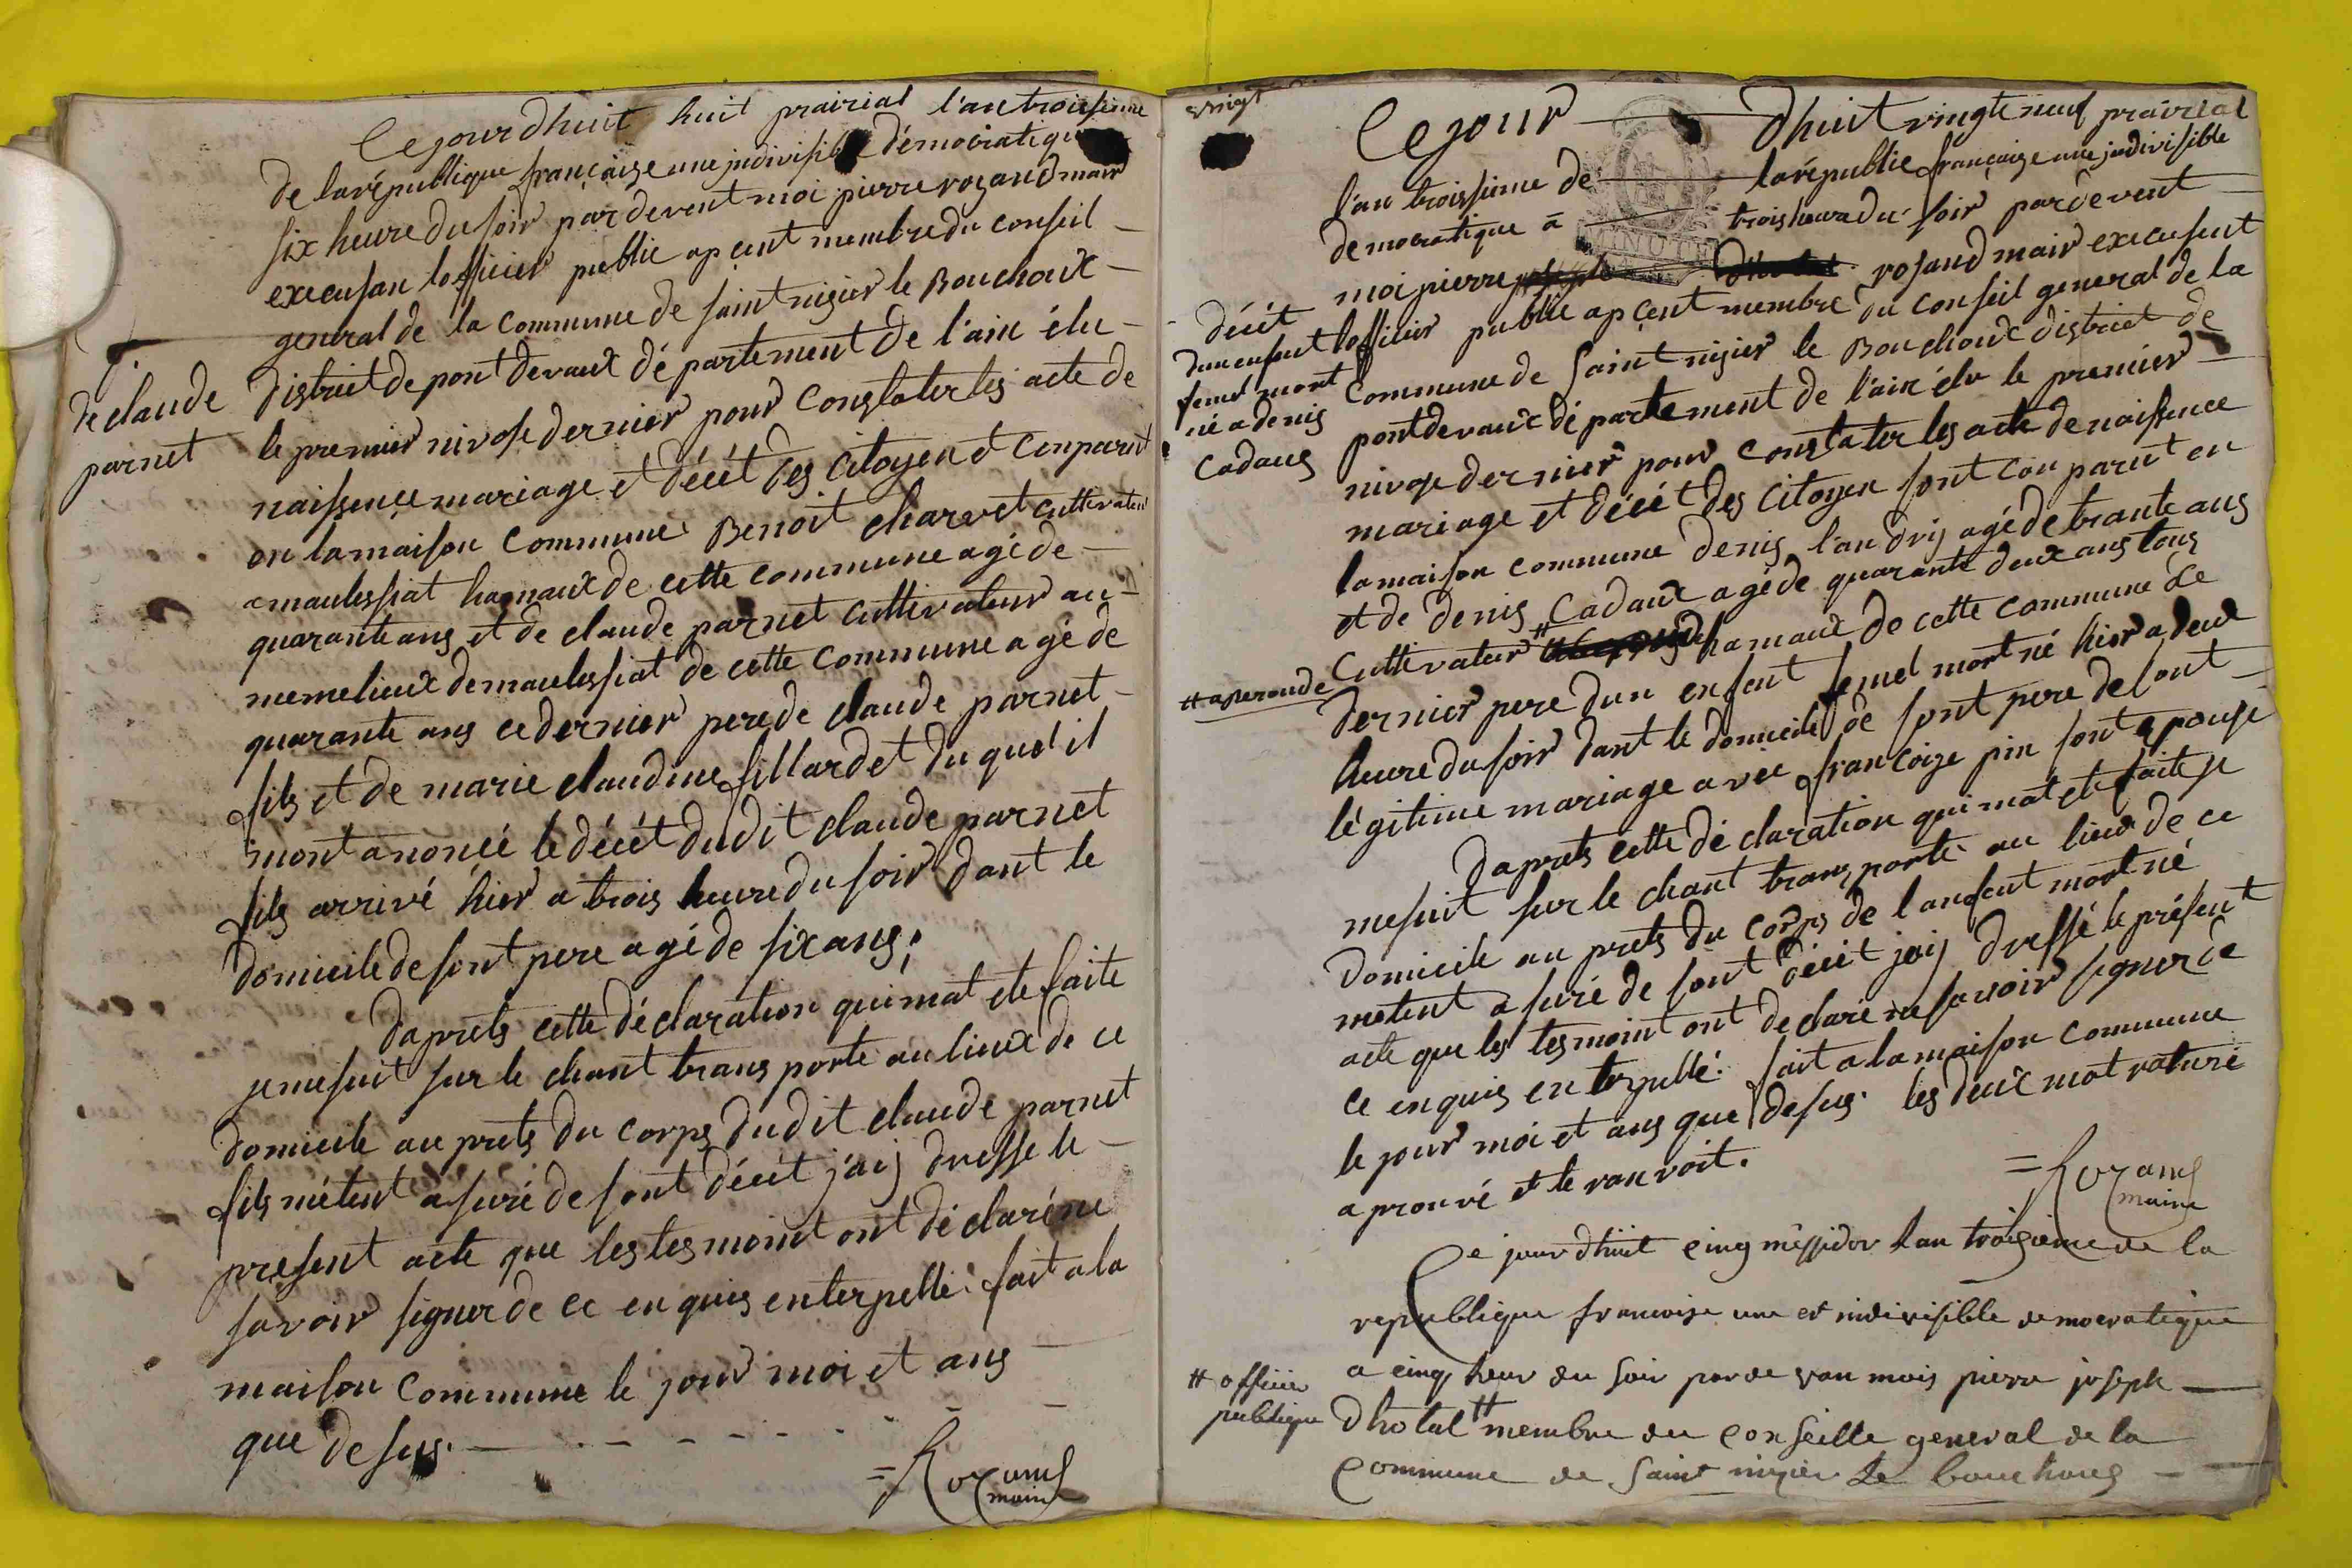 Cejourdhuit huit prairial l'an troissieme
de larépublique françaize une jndivisible démocratique
six heure du soir pardevent moi pierre rozand mair
execusan lofficier public apcent membre du conseil
general de la commune de saint nisier le Bouchoux
de claude
parnet
district de pont devaux département de l'ain élu
le premier nivose dernier pour constater les acte de
naissence mariage et décét des citoyen et conparut
en lamaison commune Benoit charvet cultivateur
a maulessiat hamaux de cette commune agé de
quarante ans et de claude parnet cultivateur au
meme lieux de maulessiat de cette commune agé de
quarante ans ce dernier pere de claude parnet
fils et de marie claudine fillardet du quel il
mont anoncé le décét dudit claude parnet
fils arrivé hier a trois heure du soir dant le
domicile de sont pere agé de six ans;
daprets cette déclaration qui mat ete faite
je me suit sur le chant trans porte au lieux de ce
domicile au prets du corps dudit claude parnet
fils métent asuré de sont décét j'aij dresse le
present acte que les tesmoint ont déclaré ne
savoir signer de ce en quis enterpellé. fait a la
maison commune le jour moi et ans
que desus.
= Rozand
maire
vingt
Cejour dhuit vingte neuf prairial
l'an troissieme de larépublic françaize une jndivisible
democratique a trois heure du soir pardevent
moi pierre joseph dhotal rosand mair execusent
décét
dun enfent
femel mort
né a denis
cadaus
lofficier public apcent membre du conseil general de la
commune de saint nisier le Bouchoux district de
pontdevaux département de l'ain élu le premier
nivose dernier pour constater les acte de naissence
mariage et décét des citoyen sont conparut en
lamaison commune denis landrij agé de trante ans
et de denis Cadaux agé de quarante deux ans tous
cultivateur # hamaux de cette commune ce
# asseronde
dernier pere dun enfent femel mort né hier a deux
heure du soir dant le domicile de sont pere de sont
légitime mariage avec francoize pin sont epouse
daprets cette déclaration qui mat ete faite je
mesuit sur le chant trans porte au lieux de ce
domicile au prets du corps de lanfent mort né
metent asuré de sont décét jaij dressé le présent
acte que les tesmoint ont declaré ne savoir signer de
ce enquis enterpellé. fait a la maison commune
le jour moi et ans que desus. les deux mot raturé
aprouvé et le ranvoit.
= Rozand
maire
Ce jourdhuit cinq messidor lan troisieme de la
republique francoise une et indivisible democratique
a cinq heur du soir par de van mois pierre joseph
# officier
publique
dhotal # membre du conseille general de la
commune de saint nizier le bouchoug